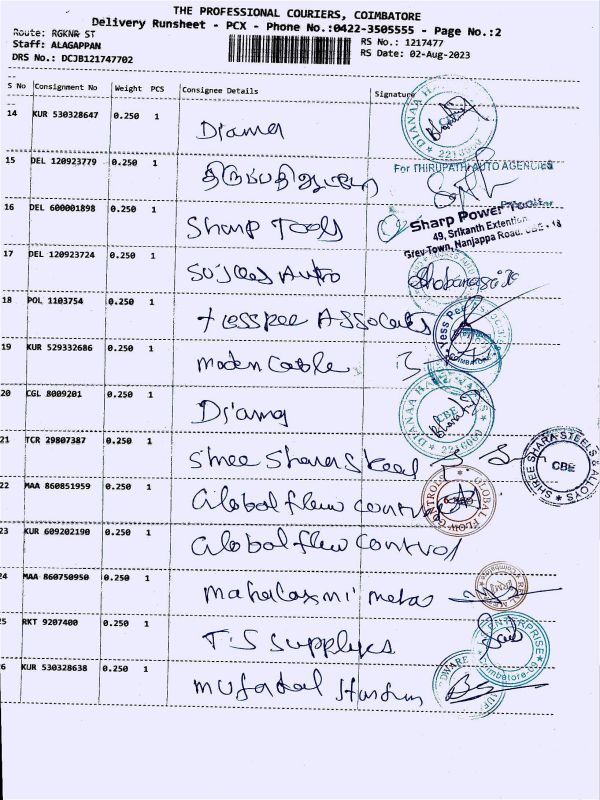 THE PROFESSIONAL COURIERS, COIMBATORE
Delivery Runsheet - PCX - Phone No.:0422-3505555 - Page No.:2
Route: RGKNR ST
Staff: ALAGAPPAN
DRS No.: DCJB121747702
RS No.: 1217477
RS Date: 02-Aug-2023
S No Consignment No Weight PCS Consignee Details Signature
14 KUR 530328647 0.250 1 Diana
15 DEL 120923779 0.250 1
For THIRUPATHI AUTO AGENCIES
16 DEL 600001898 0.250 1 Sharp Tools
Sharp Power Tools
49, Srikanth Extention
Grey Town, Nanjappa Road, CBE - 18
17 DEL 120923724 0.250 1 Auto
18 POL 1103754 0.250 1
19 KUR 529332686 0.250 1 Moden Cable
COIMBATORE
20 CGL 8009201 0.250 1 Diana
DIANAA CBE
21 TCR 29807387 0.250 1 Shree Shara Steel
SHREE SHARA STEELS & ALLOYS CBE
22 MAA 860851959 0.250 1 Global flow control
GLOBAL FLOW CONTROLS
23 KUR 609202190 0.250 1 Global flow control
24 MAA 860750950 0.250 1 mahalaxmi metas
25 RKT 9207400 0.250 1 T.S supplyes
ENTERPRISE Coimbatore
26 KUR 530328638 0.250 1